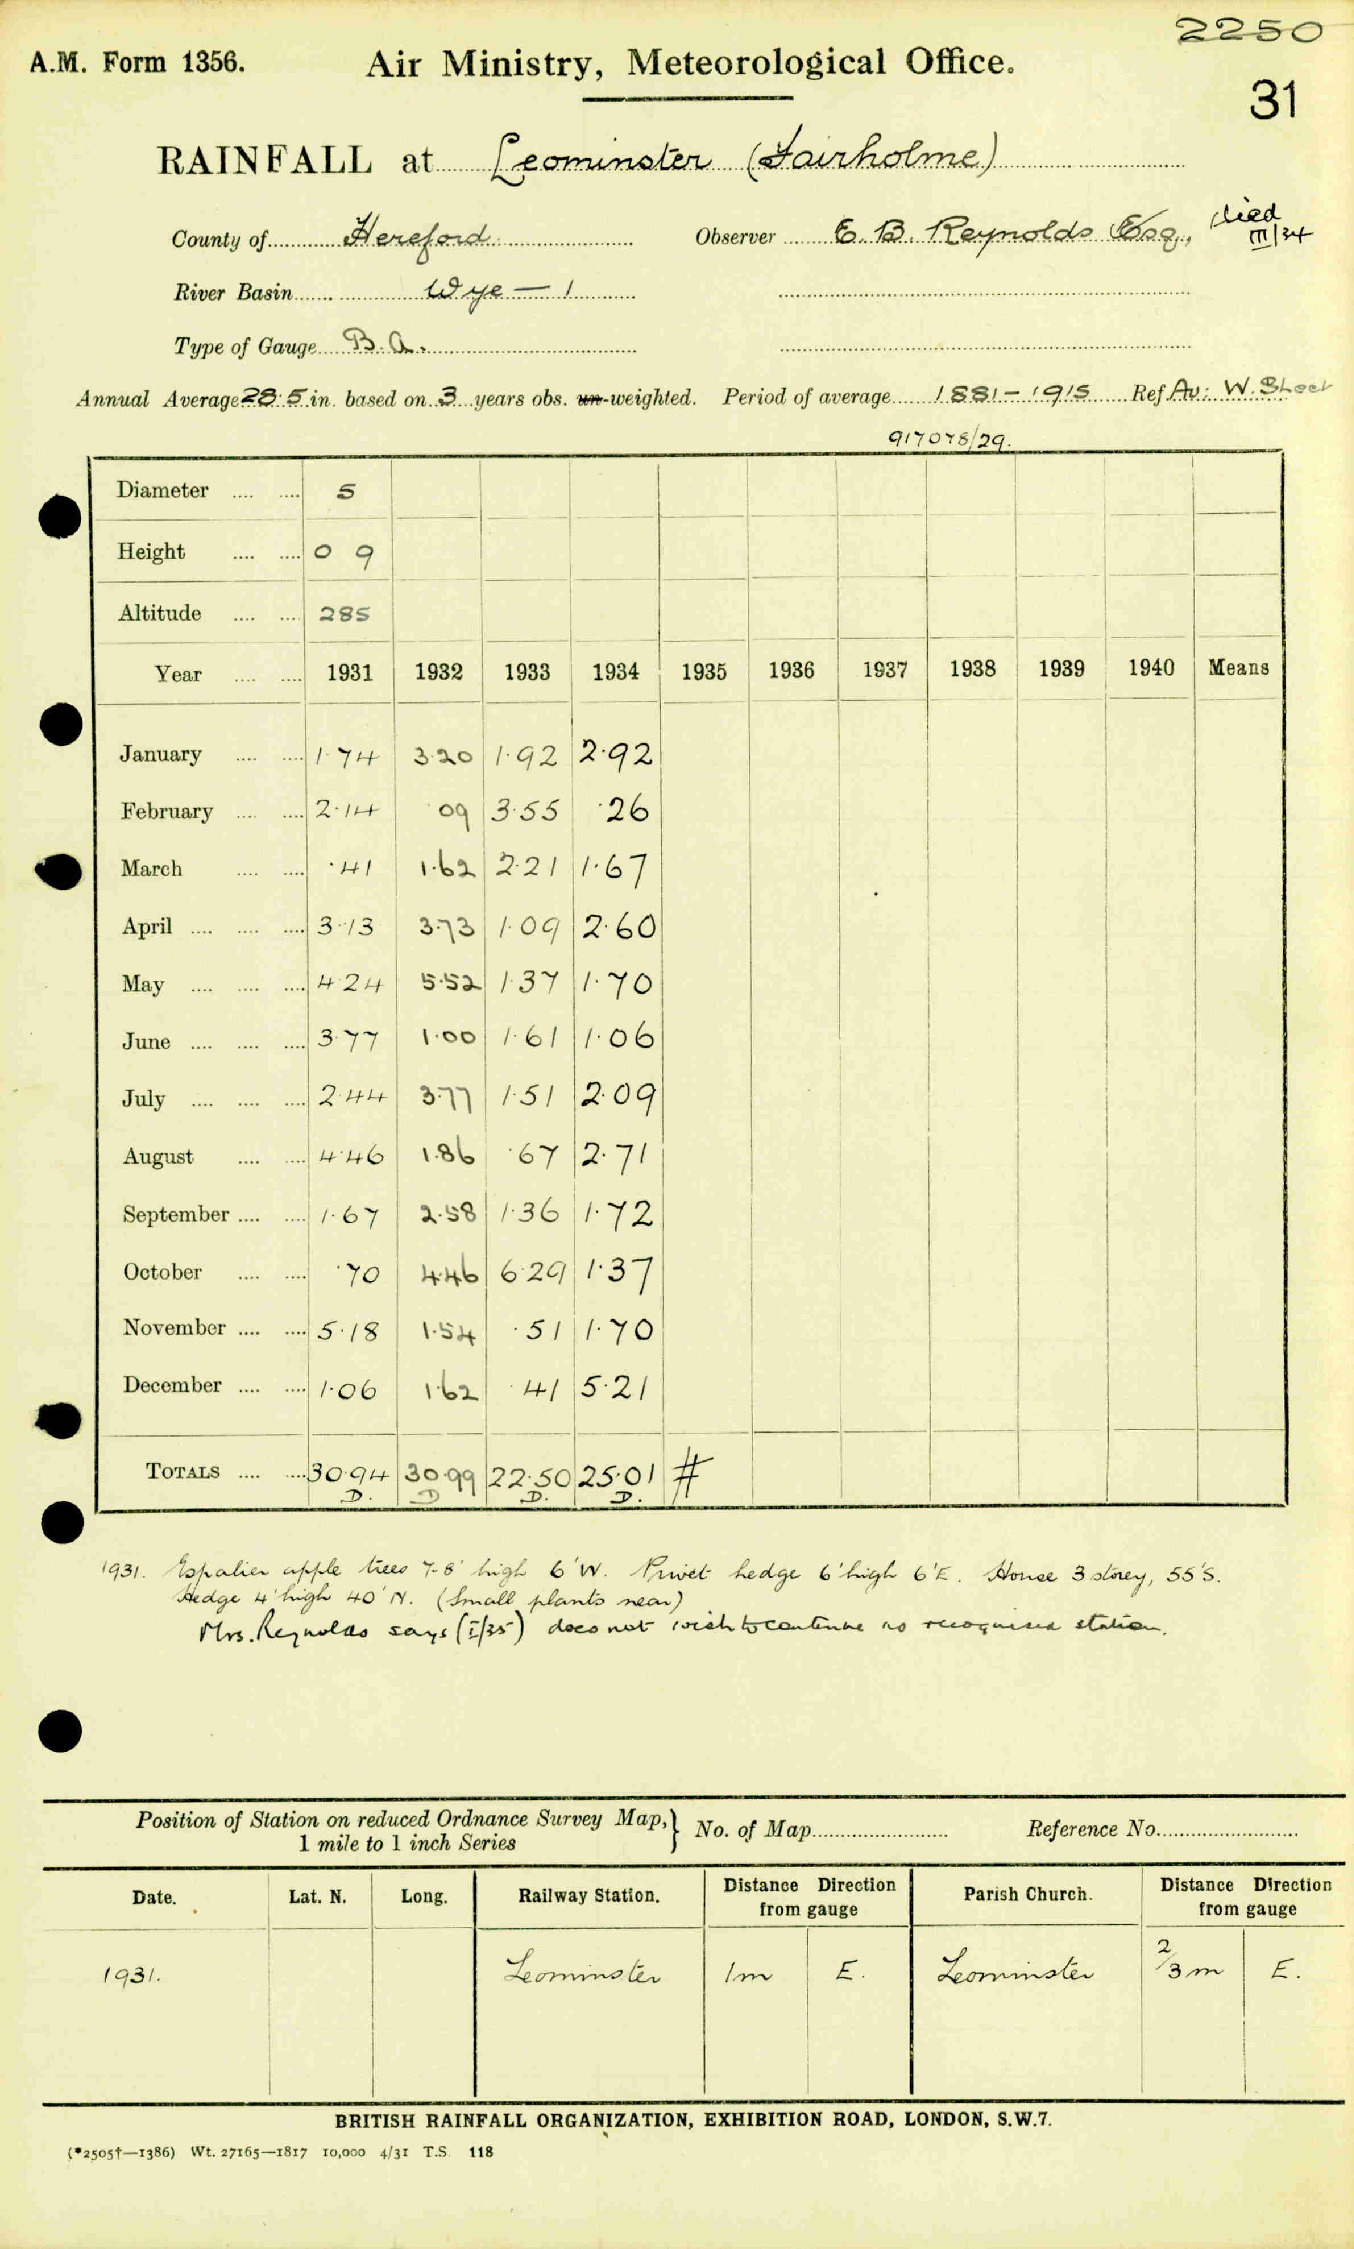 2250
A.M. Form 1356. Air Ministry, Meteorological Office.
31
RAINFALL at Leominster (Fairholme)
County of Hereford Observer E. B. Reynolds Esq., died III/34
River Basin Wye — 1
Type of Gauge B. A.
Annual Average 28.5 in. based on 3 years obs. un-weighted. Period of average 1881–1915 Ref Av: W. Sheet
917078/29.
Diameter .... .... 5
Height .... .... 0 9
Altitude .... .... 285
Year .... .... 1931 1932 1933 1934 1935 1936 1937 1938 1939 1940 Means
January .... .... 1.74 3.20 1.92 2.92
February .... .... 2.14 09 3.55 .26
March .... .... .41 1.62 2.21 1.67
April .... .... .... 3.13 3.73 1.09 2.60
May .... .... .... 4.24 5.52 1.37 1.70
June .... .... .... 3.77 1.00 1.61 1.06
July .... .... .... 2.44 3.77 1.51 2.09
August .... .... 4.46 1.86 .67 2.71
September .... .... 1.67 2.58 1.36 1.72
October .... .... .70 4.46 6.29 1.37
November .... .... 5.18 1.54 .51 1.70
December .... .... 1.06 1.62 .41 5.21
TOTALS .... .... 30.94 30.99 22.50 25.01 #
D. D D. D.
1931. Espalier apple trees 7-8' high 6'W. Privet hedge 6'high 6'E. House 3 storey, 55'S.
Hedge 4'high 40'N. (Small plants near)
Mrs. Reynolds says (I/35) does not wish to continue as recognised station.
Position of Station on reduced Ordnance Survey Map,} No. of Map Reference No.
1 mile to 1 inch Series
Date. Lat. N. Long. Railway Station. Distance Direction from gauge Parish Church. Distance Direction from gauge
1931. Leominster 1m E. Leominster 2/3 m E.
BRITISH RAINFALL ORGANIZATION, EXHIBITION ROAD, LONDON, S.W.7.
(*2505†—1386) Wt. 27165—1817 10,000 4/31 T.S. 118